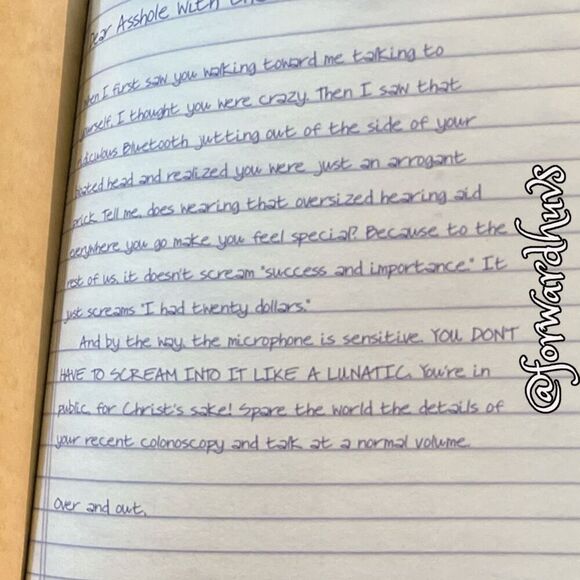 Dear Asshole With
When I first saw you walking toward me talking to
yourself, I thought you were crazy. Then I saw that
ridiculous Bluetooth jutting out of the side of your
head and realized you were just an arrogant
prick. Tell me, does wearing that oversized hearing aid
everywhere you go make you feel special? Because to the
rest of us, it doesn't scream "success and importance." It
just screams "I had twenty dollars."
And by the way, the microphone is sensitive. YOU DON'T
HAVE TO SCREAM INTO IT LIKE A LUNATIC. You're in
public, for Christ's sake! Spare the world the details of
your recent colonoscopy and talk at a normal volume.
Over and out,
@forwardhuvs